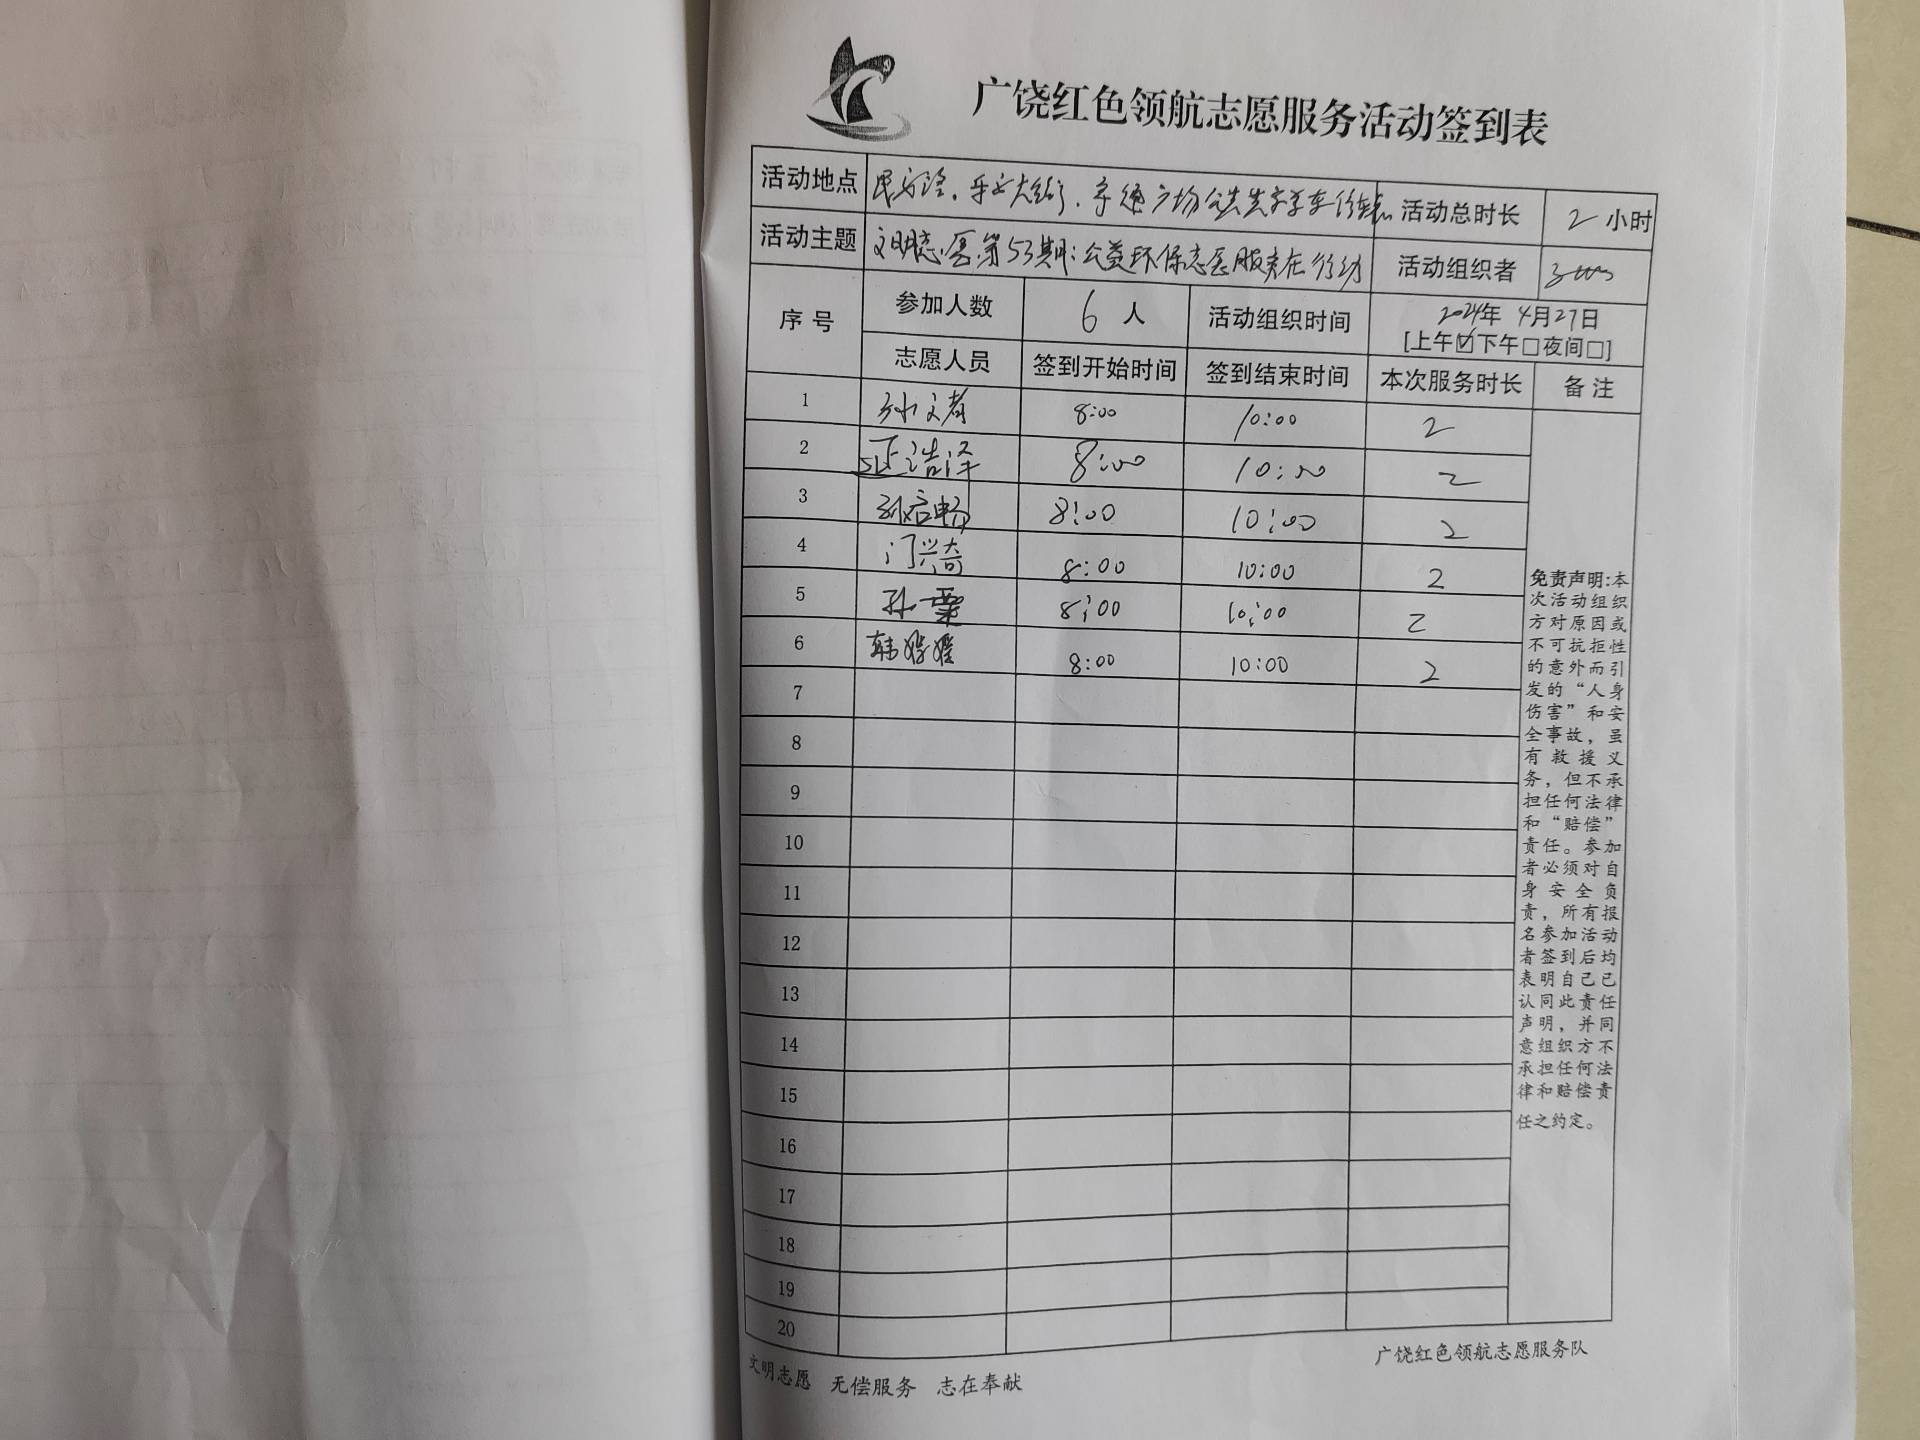 广饶红色领航志愿服务活动签到表
活动地点 乐安大街、 广场公共 活动总时长 2 小时
活动主题 文明志愿第53期:公益环保志愿服务在行动 活动组织者
序号 参加人数 6 人 活动组织时间 2024年 4月27日
[上午☑下午□夜间□]
志愿人员 签到开始时间 签到结束时间 本次服务时长 备注
1 孙文者 8:00 10:00 2
2 延浩泽 8:00 10:00 2
3 孙启畅 8:00 10:00 2
4 门兴奇 8:00 10:00 2
5 孙 8:00 10:00 2
6 韩 8:00 10:00 2
7
8
9
10
11
12
13
14
15
16
17
18
19
20
免责声明:本
次活动组织
方对原因或
不可抗拒性
的意外而引
发的“人身
伤害”和安
全事故,虽
有救援义
务,但不承
担任何法律
和“赔偿”
责任。参加
者必须对自
身安全负
责,所有报
名参加活动
者签到后均
表明自己已
认同此责任
声明,并同
意组织方不
承担任何法
律和赔偿责
任之约定。
文明志愿 无偿服务 志在奉献 广饶红色领航志愿服务队